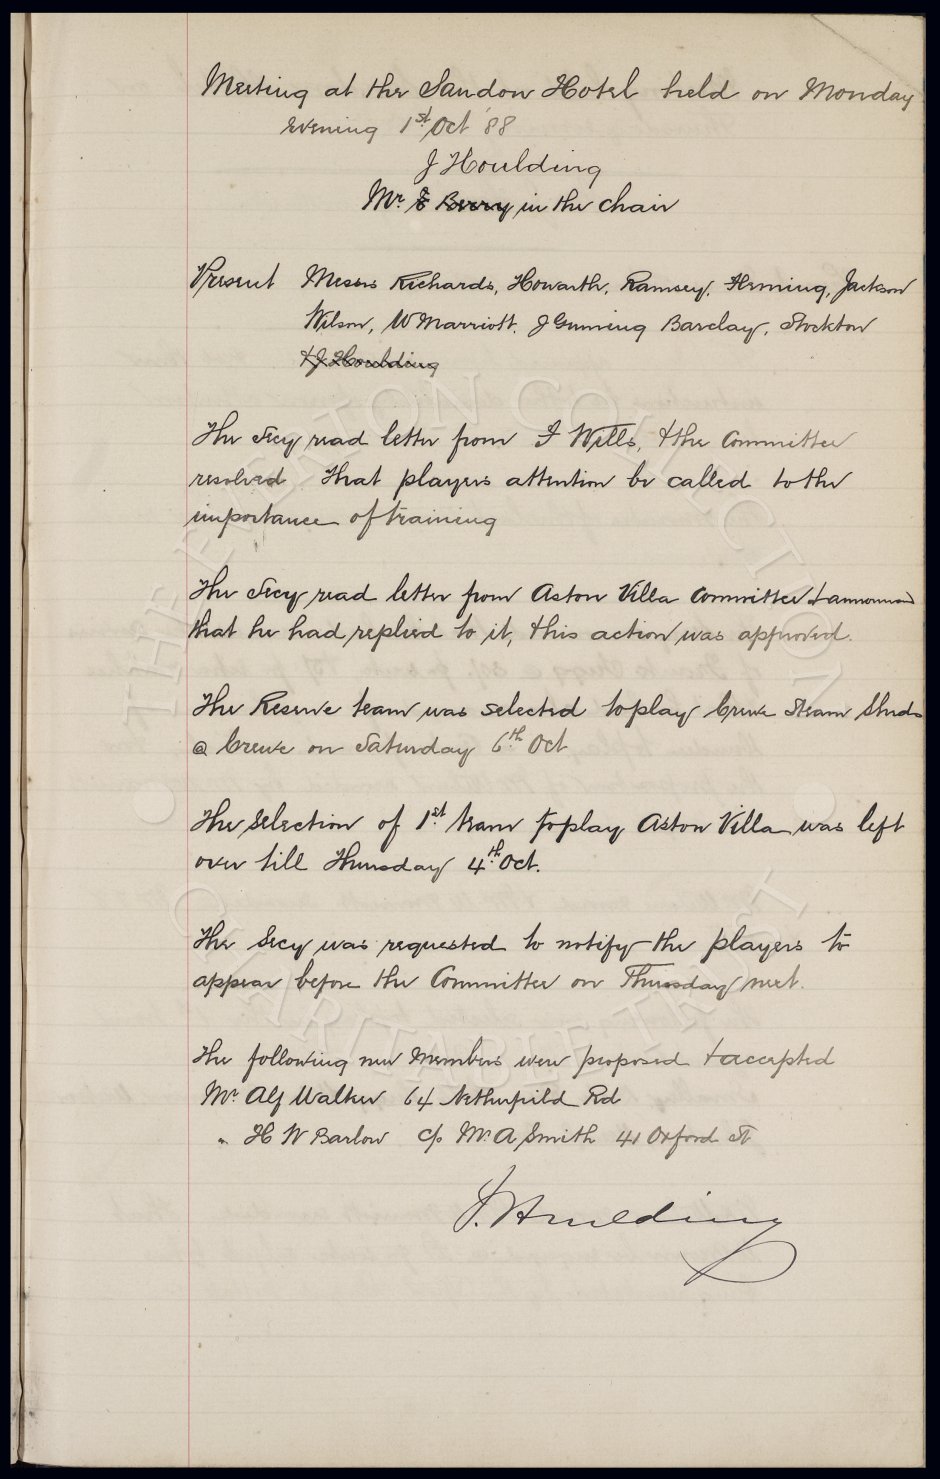 Meeting at the Sandon Hotel held on Monday
evening 1st Oct '88
J Houlding
Mr. Berry in the chair
Present Messrs Richards, Howarth, Ramsey, Fleming, Jackson
Wilson, W Marriott, J Gunning Barclay, Stockton
& J. Houlding
The Secy read letter from I Wills, & the Committee
resolved that players attention be called to the
importance of training
The Secy read letter from Aston Villa Committee & announced
that he had replied to it, & this action was approved.
The Reserve team was selected to play Crewe Steam Sheds
@ Crewe on Saturday 6th Oct
The selection of 1st team to play Aston Villa was left
over till Thursday 4th Oct.
The Secy was requested to notify the players to
appear before the Committee on Thursday next.
The following new Members were proposed & accepted
Mr. Alf Walker 64 Netherfield Rd
" H W Barlow c/o Mr. A Smith 41 Oxford St
J. Houlding
THE EVERTON COLLECTION
CHARITABLE TRUST